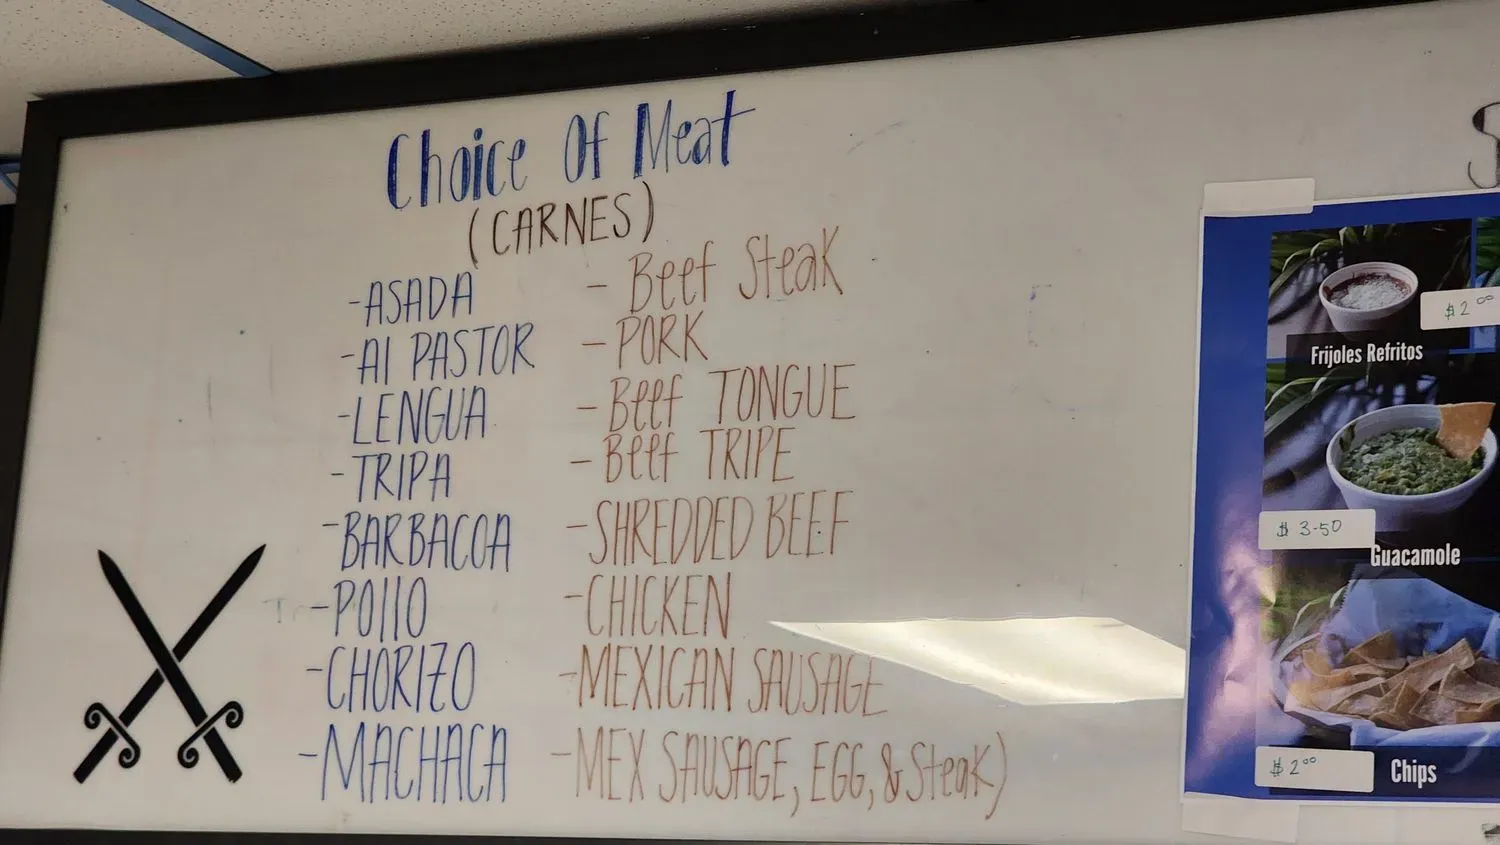 Choice Of Meat
(CARNES)
-ASADA - Beef Steak
-Al PASTOR - PORK
-LENGUA - Beef TONGUE
-TRIPA - Beef TRIPE
-BARBACOA -SHREDDED BEEF
-POllO -CHICKEN
-CHORIZO -MEXICAN SAUSAGE
-MACHACA -MEX SAUSAGE, EGG, & Steak)
$2⁰⁰
Frijoles Refritos
$ 3-50
Guacamole
$2⁰⁰
Chips